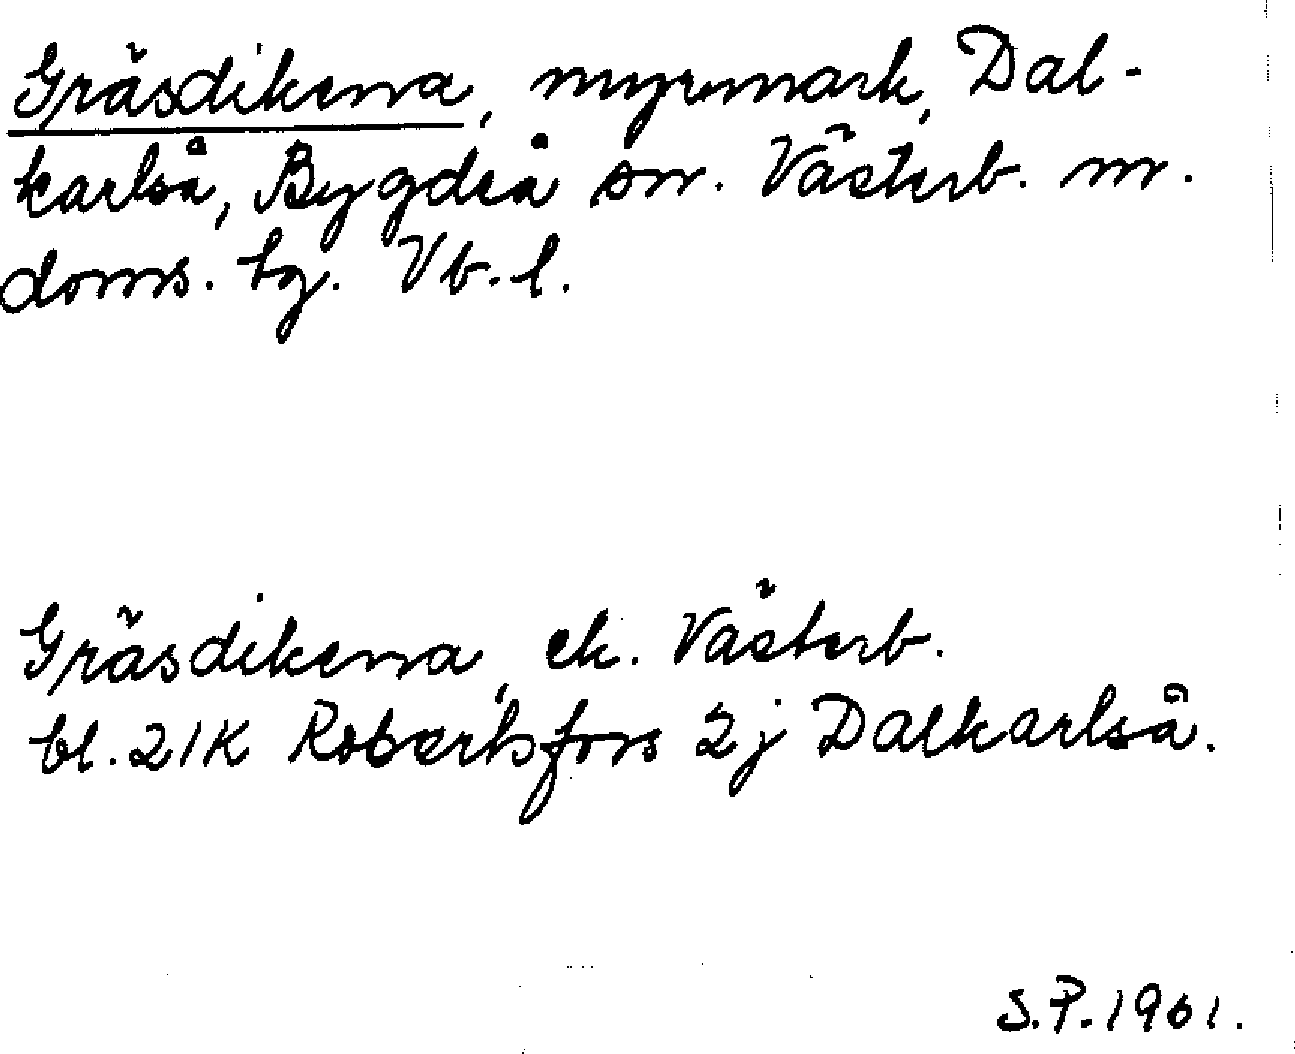 Gräsdikena, myrmark, Dal-
karlså, Bygdeå sn. Västerb. m.
doms. tg. Vb. l.
Gräsdikena, ek. Västerb.
bl. 21K Robertsfors 2j Dalkarlså.
S.P. 1961.